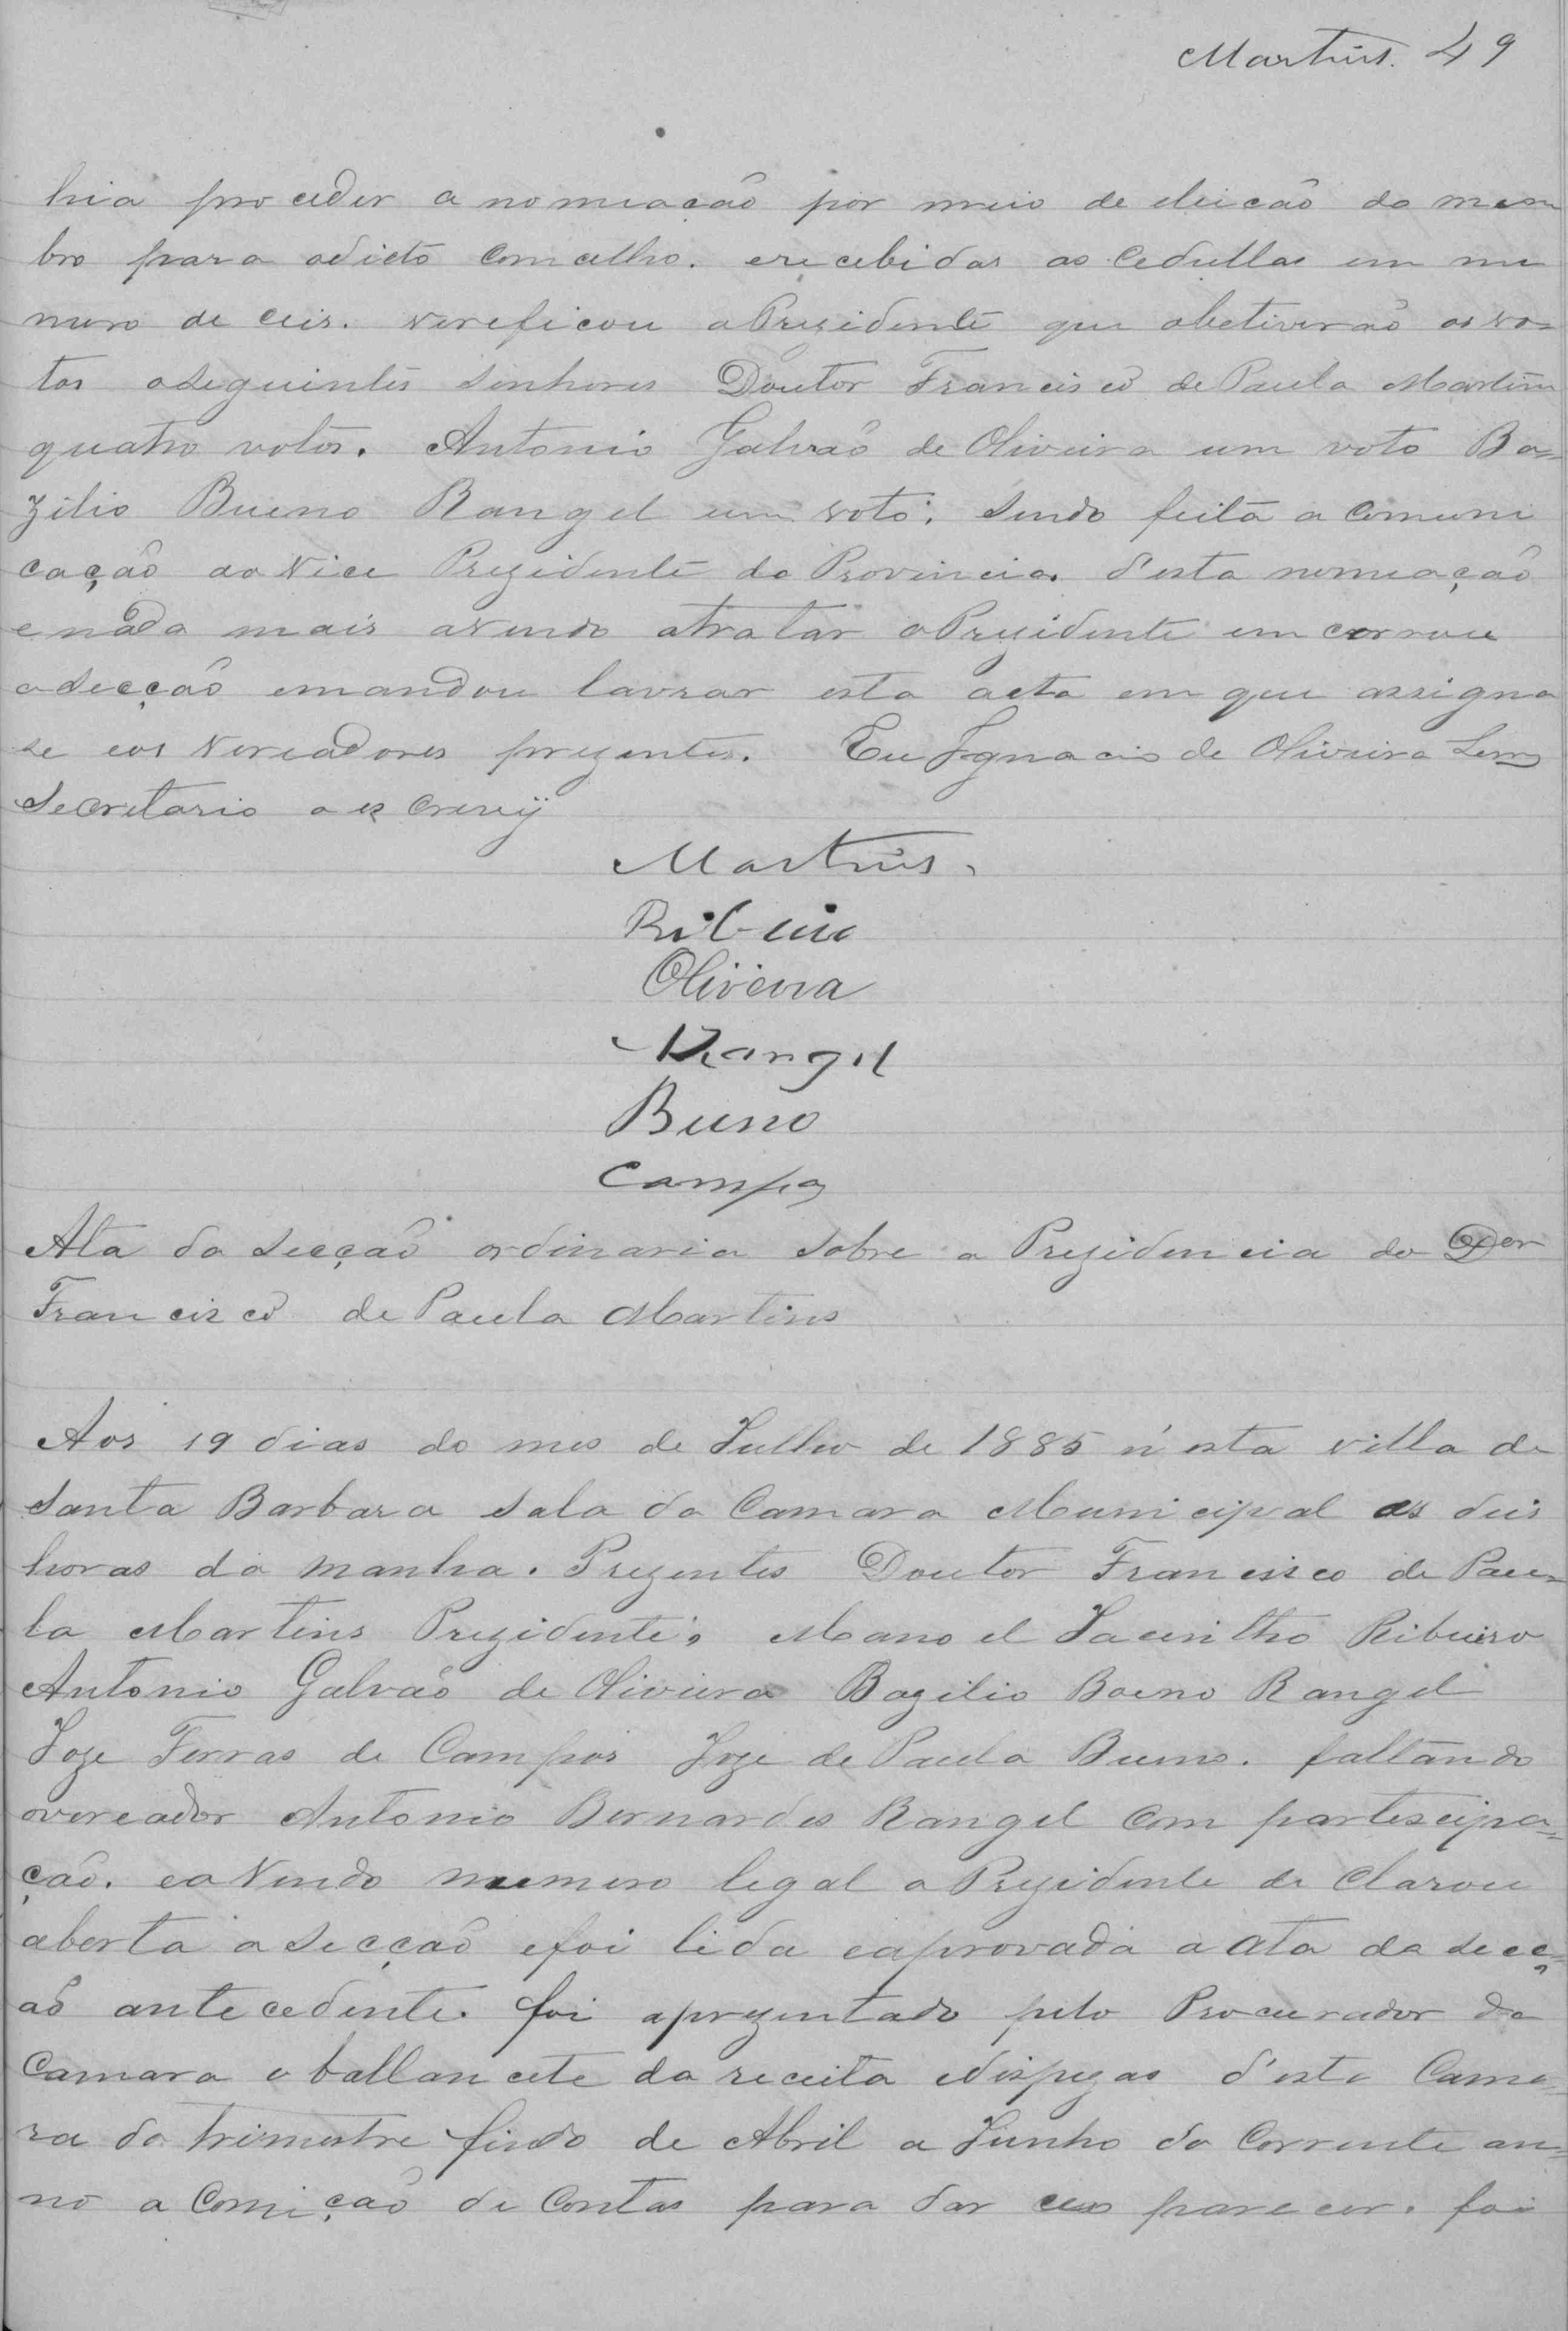 Martins. 49
hia proceder a nomeação por meio de eleicão do mem
bro para odicto Comcelho. erecebidas as Cedullas em nu
mero de ceis. vereficou oPrezidente que obetiverão os vo=
tos oseguintes senhores Doutor Francisco de Paula Martins
quatro votos. Antonio Galvão de Oliveira um voto Ba=
zilio Bueno Rangel um voto. sendo feita a Comuni
cação ao Vice Prezidente da Provincia. d'esta nomeação
enada mais avendo atratar oPrezidente em cerrou
a secção emandou lavrar esta acta em que assigna
se eos Vereadores prezentes. Eu Ignacio de Oliveira Lemos
Secretario a es Crevij
Martins.
Ribeiro
Oliveira
Rangel
Bueno
Campos
Ata da secção ordinaria sobre a Prezidencia do Der
Francisco de Paula Martins
Aos 19 dias do mes de Julho de 1885 n'esta villa de
Santa Barbara sala da Camara Municipal as deis
horas da manha. Prezentes Doutor Francisco de Pau=
la Martins Prezidente. Manoel Jacintho Ribeiro
Antonio Galvão de Oliveira Bazilio Boeno Rangel
Joze Ferras de Campos Joze de Paula Bueno. faltando
overeador Antonio Bernardes Rangel Com partescipa=
ção. eaVendo numero legal o Prezidente de Clarou
aberta a secção efoi lida eaprovada a ata da secç=
ão antecedente. foi aprezentado pelo Procurador da
Camara o ballancete da receita edispezas d'esta Cama=
ra do trimestre findo de Abril a Junho do Corrente an=
no a Comição de Contas para dar ceo parecer. foi